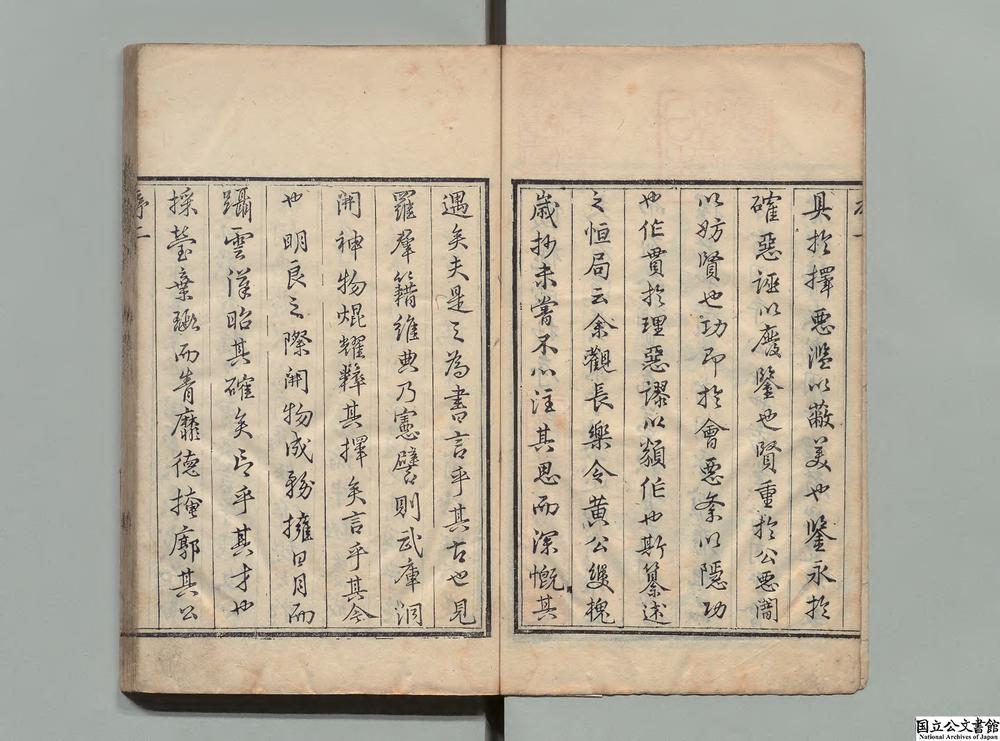 具於擇惡濫以蔽美也鑒永於
確惡誣以廢鑒也賢重於公惡闇
以妨賢也功即於會惡条以隱功
也作貫於理惡謬以纇作也斯纂述
之恒局云余觀長樂令黄公雙槐
歲抄未嘗不心注其思而深慨其
遇矣夫是之為書言乎其古也見
羅羣籍維典乃憲譬則武庫洞
開神物焜耀粹其擇矣言乎其今
也明良之際開物成務擁日月而
躡雲漢昭其確矣言乎其才也
採瑩棄而青靡德掩廓其公
序二
国立公文書館
National Archives of Japan